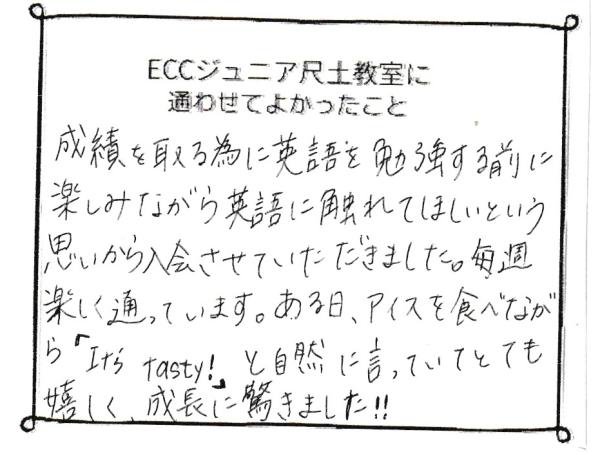 ECCジュニア尺土教室に
通わせてよかったこと
成績を取る為に英語を勉強する前に
楽しみながら英語に触れてほしいという
思いから入会させていただきました。毎週
楽しく通っています。ある日、アイスを食べなが
ら「It's tasty!」と自然に言っていてとても
嬉しく、成長に驚きました!!